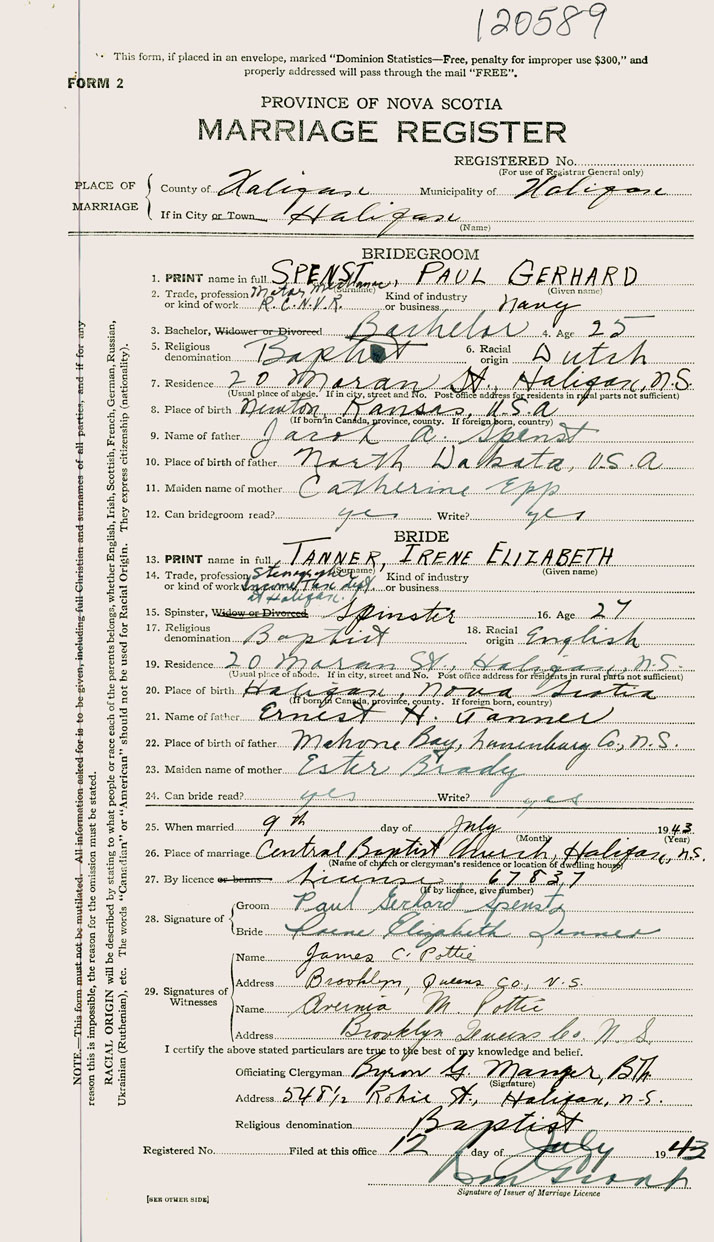 120589
This form, if placed in an envelope, marked "Dominion Statistics—Free, penalty for improper use $300," and
properly addressed will pass through the mail "FREE".
FORM 2
PROVINCE OF NOVA SCOTIA
MARRIAGE REGISTER
REGISTERED No.
(For use of Registrar General only)
PLACE OF MARRIAGE
County of Halifax Municipality of Halifax
If in City or Town Halifax
(Name)
BRIDEGROOM
1. PRINT name in full SPENST, PAUL GERHARD
(Surname) (Given name)
2. Trade, profession or kind of work Motor Mechanic R.C.N.V.R. Kind of industry or business Navy
3. Bachelor, Widower or Divorced Bachelor 4. Age 25
5. Religious denomination Baptist 6. Racial origin Dutch
7. Residence 20 Moran St., Halifax, N.S.
(Usual place of abode. If in city, street and No. Post office address for residents in rural parts not sufficient)
8. Place of birth Newton, Kansas, U.S.A
(If born in Canada, province, county. If foreign born, country)
9. Name of father Jacob A. Spenst
10. Place of birth of father North Dakota, U.S.A
11. Maiden name of mother Catherine Epp
12. Can bridegroom read? yes Write? yes
BRIDE
13. PRINT name in full TANNER, IRENE ELIZABETH
(Surname) (Given name)
14. Trade, profession or kind of work Stenographer Income Tax dept at Halifax Kind of industry or business
15. Spinster, Widow or Divorced Spinster 16. Age 27
17. Religious denomination Baptist 18. Racial origin English
19. Residence 20 Moran St., Halifax, N.S.
(Usual place of abode. If in city, street and No. Post office address for residents in rural parts not sufficient)
20. Place of birth Halifax, Nova Scotia
(If born in Canada, province, county. If foreign born, country)
21. Name of father Ernest H. Tanner
22. Place of birth of father Mahone Bay, Lunenburg Co., N.S.
23. Maiden name of mother Ester Brady
24. Can bride read? yes Write? yes
25. When married 9th day of July 1943
(Month) (Year)
26. Place of marriage Central Baptist Church, Halifax, N.S.
(Name of church or clergyman's residence or location of dwelling house)
27. By licence or banns License 67837
(If by licence, give number)
28. Signature of Groom Paul Gerhard Spenst
Bride Irene Elizabeth Tanner
29. Signatures of Witnesses
Name James C. Pottie
Address Brooklyn, Queens Co., N.S.
Name M. Pottie
Address Brooklyn Queens Co. N.S.
I certify the above stated particulars are true to the best of my knowledge and belief.
Officiating Clergyman Byron G. Manzer, BTh
(Signature)
Address 548 1/2 Robie St., Halifax, N.S.
Religious denomination Baptist
Registered No. Filed at this office 12 day of July 1943
Signature of Issuer of Marriage Licence
[SEE OTHER SIDE]
NOTE.—This form must not be mutilated. All information asked for is to be given, including full Christian and surnames of all parties, and if for any
reason this is impossible, the reason for the omission must be stated.
RACIAL ORIGIN will be described by stating to what people or race each of the parents belongs, whether English, Irish, Scottish, French, German, Russian,
Ukrainian (Ruthenian), etc. The words "Canadian" or "American" should not be used for Racial Origin. They express citizenship (nationality).